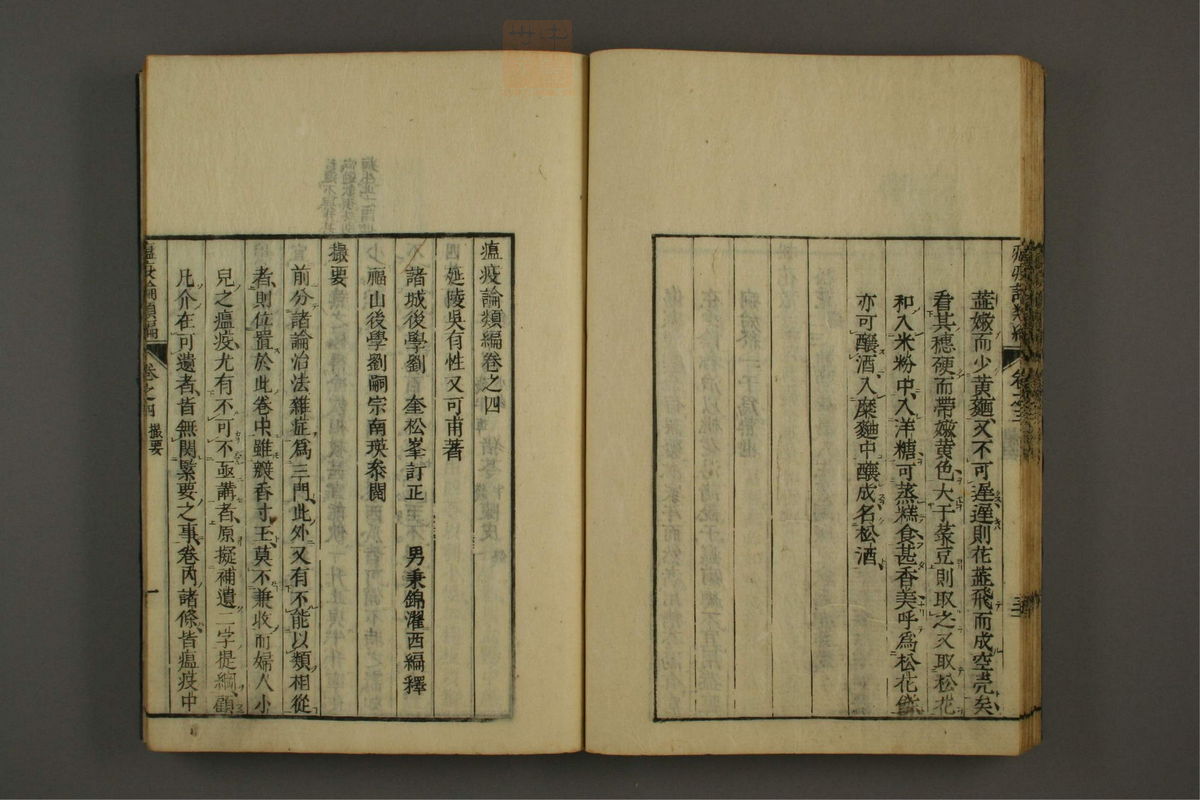 瘟疫論類編 卷之三
蕋嫰而少黄麵又不可遲遲則花蕋飛而成空壳矣
看其穗硬而帶嫰黄色大于菉豆則取之又取松花
和入米粉中入洋糖可蒸糕食甚香美呼為松花
亦可釀酒入糜麵中釀成名松酒
瘟疫論類編卷之四
延陵吳有性又可甫著
諸城後學劉 奎松峯訂正 男秉錦濯西編釋
福山後學劉嗣宗南瑛叅閱
撮要
前分諸論治法雜症為三門此外又有不能以類相從
者則位置於此卷中雖辮香寸玉莫不兼收而婦人小
兒之瘟疫尤有不可不亟講者原擬補遺二字提綱顧
凡介在可遺者皆無関緊要之事卷內諸條皆瘟疫中
瘟疫論類編 卷之四 撮要 一